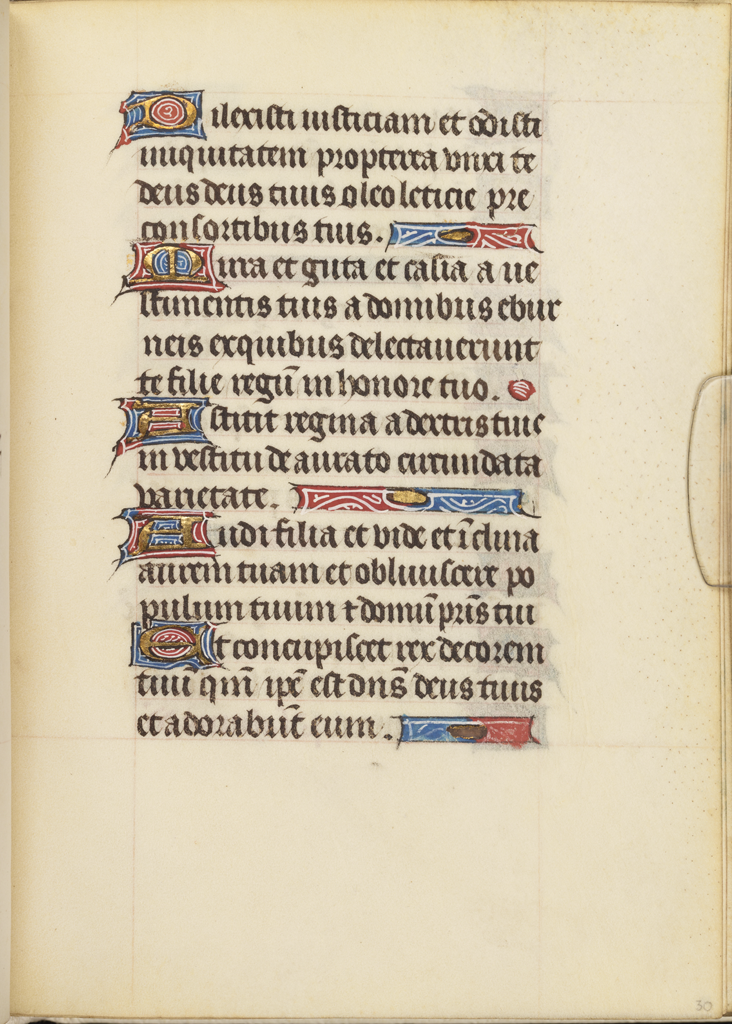 Dilexisti iusticiam et odisti
iniquitatem propterea vnxi te
deus deus tuus oleo leticie pre
consortibus tuis.
Mirra et guta et casia a ue
stimentis tuis a domibus ebur
neis exquibus delectauerunt
te filie regū in honore tuo.
Astitit regina a dextris tuis
in vestitu de aurato circundata
varietate.
Audi filia et vide et īclina
aurem tuam et obliuiscere po
pulum tuum ⁊ domū pr̄is tui
Et concupiscet rex decorem
tuū qm̄ ip̄e est dn̄s deus tuus
et adorabūt eum.
30